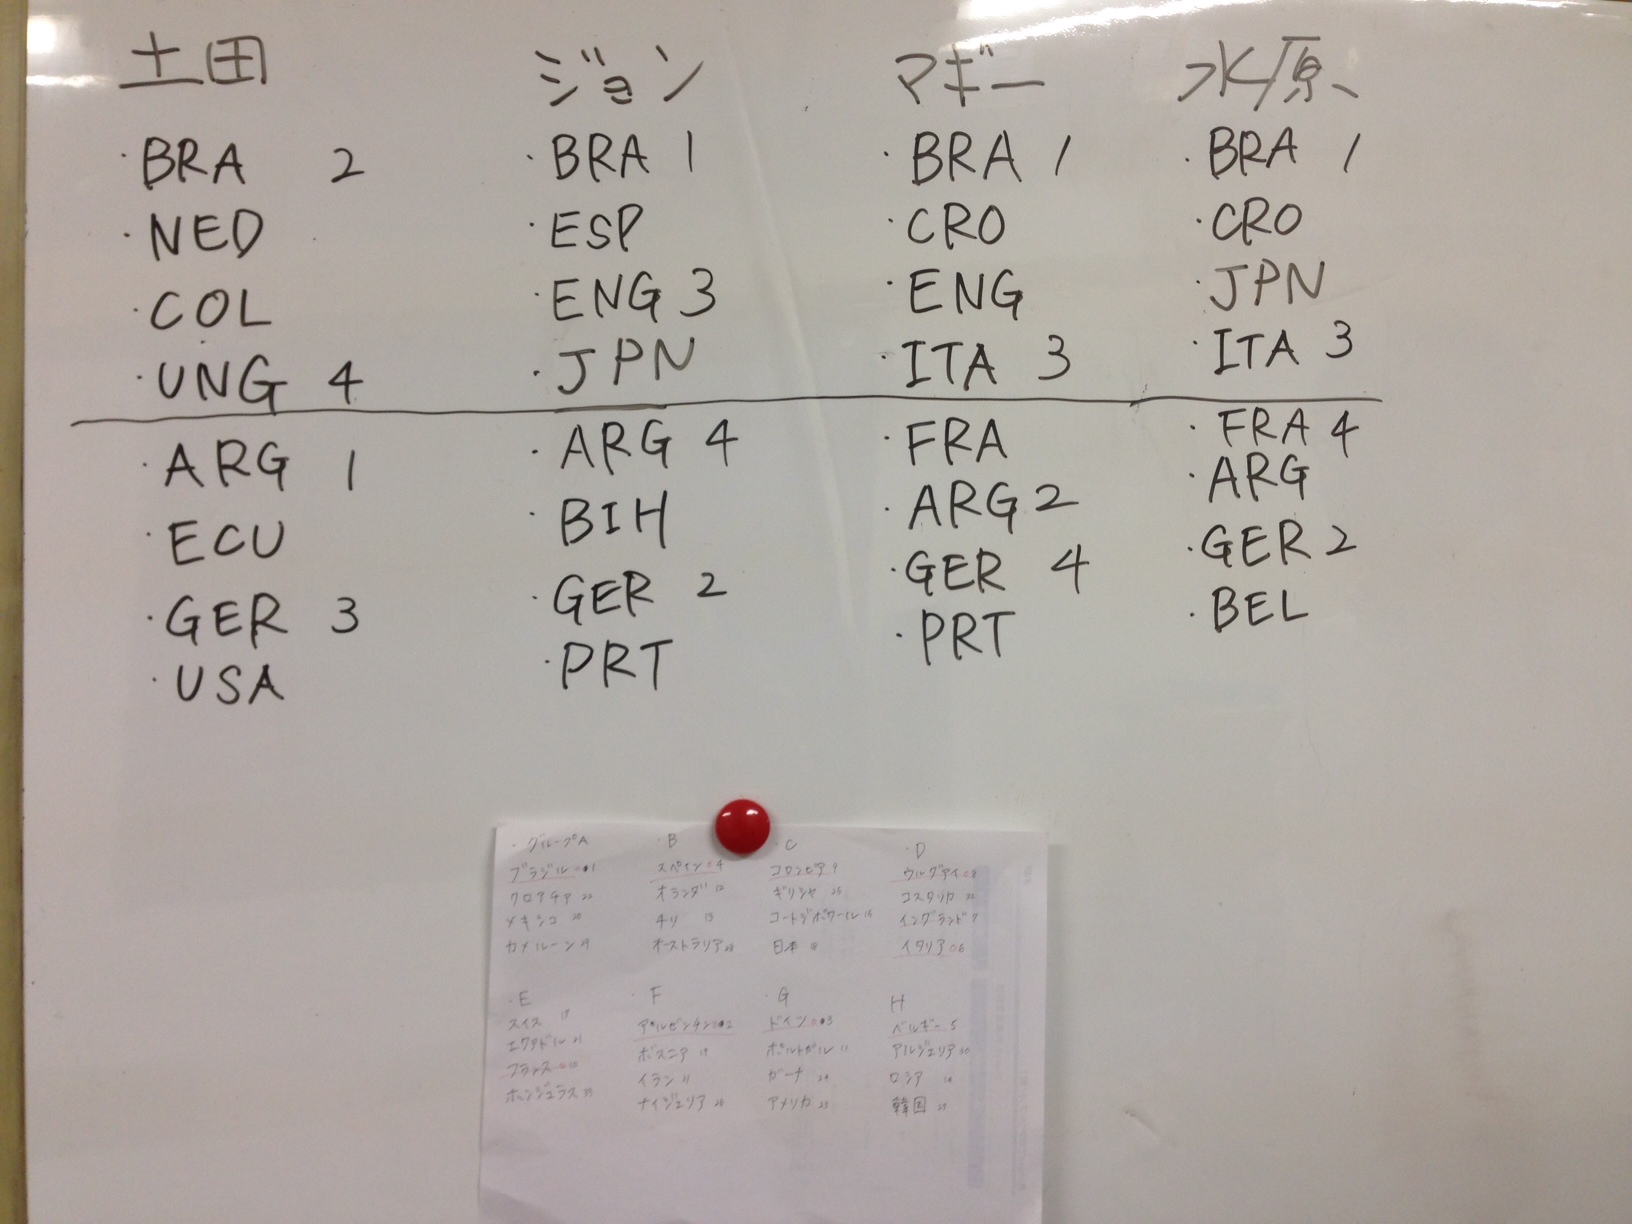 土田 ジョン マギー 水原
・BRA 2 ・BRA 1 ・BRA 1 ・BRA 1
・NED ・ESP ・CRO ・CRO
・COL ・ENG 3 ・ENG ・JPN
・UNG 4 ・JPN ・ITA 3 ・ITA 3
・ARG 1 ・ARG 4 ・FRA ・FRA 4
・ECU ・BIH ・ARG 2 ・ARG
・GER 3 ・GER 2 ・GER 4 ・GER 2
・USA ・PRT ・PRT ・BEL
・グループA ・B ・C ・D
ブラジル スペイン コロンビア ウルグアイ
クロアチア オランダ ギリシャ コスタリカ
メキシコ チリ コートジボワール イングランド
カメルーン オーストラリア 日本 イタリア
・E ・F ・G H
スイス アルゼンチン ドイツ ベルギー 5
エクアドル ボスニア ポルトガル アルジェリア
フランス イラン ガーナ ロシア
ホンジュラス ナイジェリア アメリカ 韓国